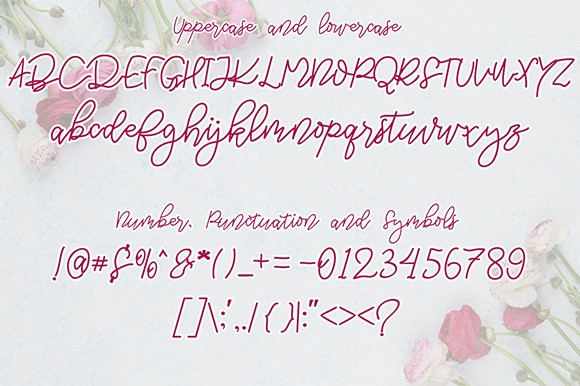 Uppercase and lowercase
ABCDEFGHIJKLMNOPQRSTUVWXYZ
abcdefghijklmnopqrstuvwxyz
Number, Punctuation and Symbols
!@#$%^&*()_+=-0123456789
[]\;',./{}|:"<><?